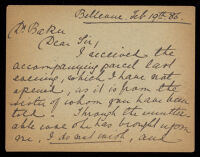 Bellevue, Feb 19th 86.
Dr Baker
Dear Sir,
I received the
accompanying parcel last
evening, which I have not
opened, as it is from the
sister of whom you have been
told. Through the
able woe she has brought upon
me, I do not wish, and